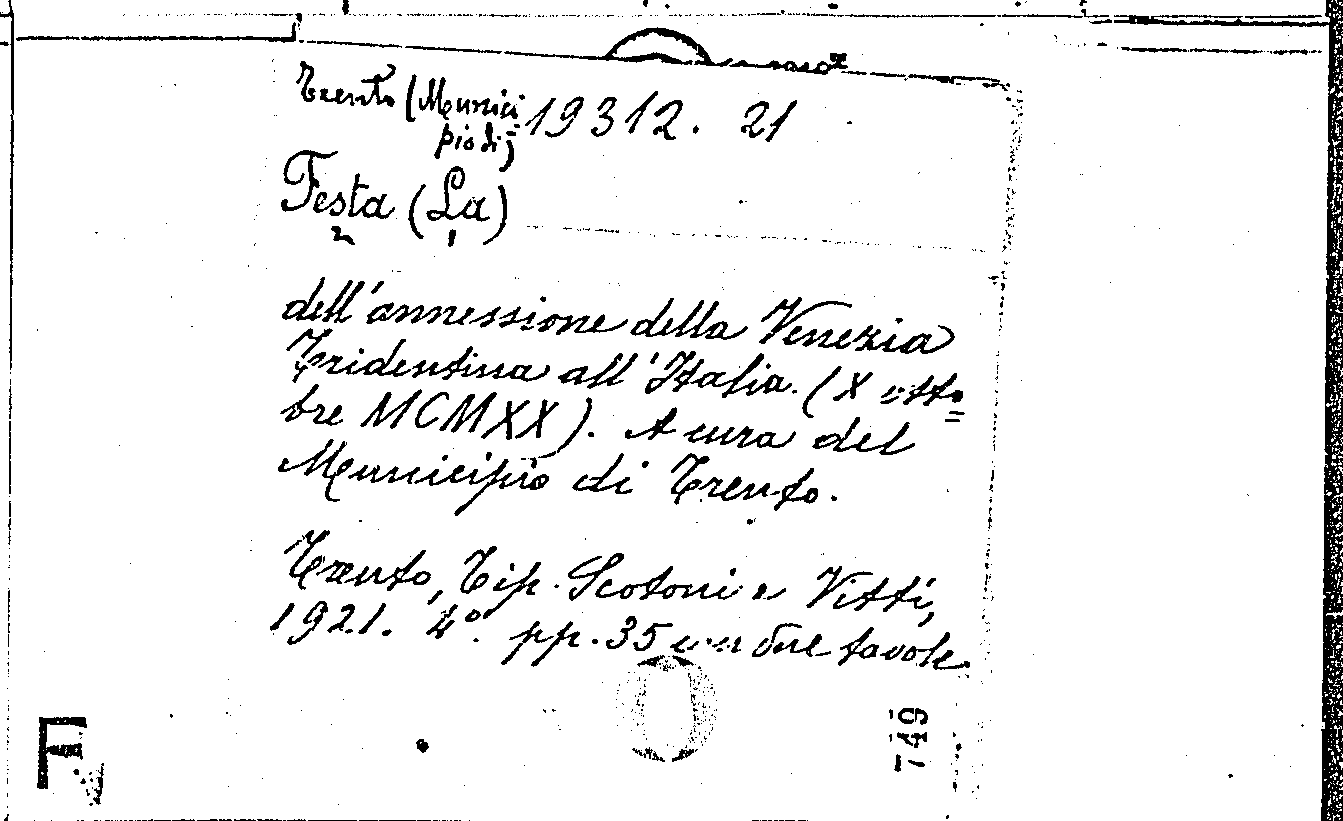 Trento (Munici
pio di)
19312. 21
Festa (La)
2 1
dell'annessione della Venezia
Tridentina all'Italia. (X otto=
bre MCMXX). A cura del
Municipio di Trento.
Trento, Tip. Scotoni e Vitti,
1921. 4°. pp. 35 con due tavole.
749
F